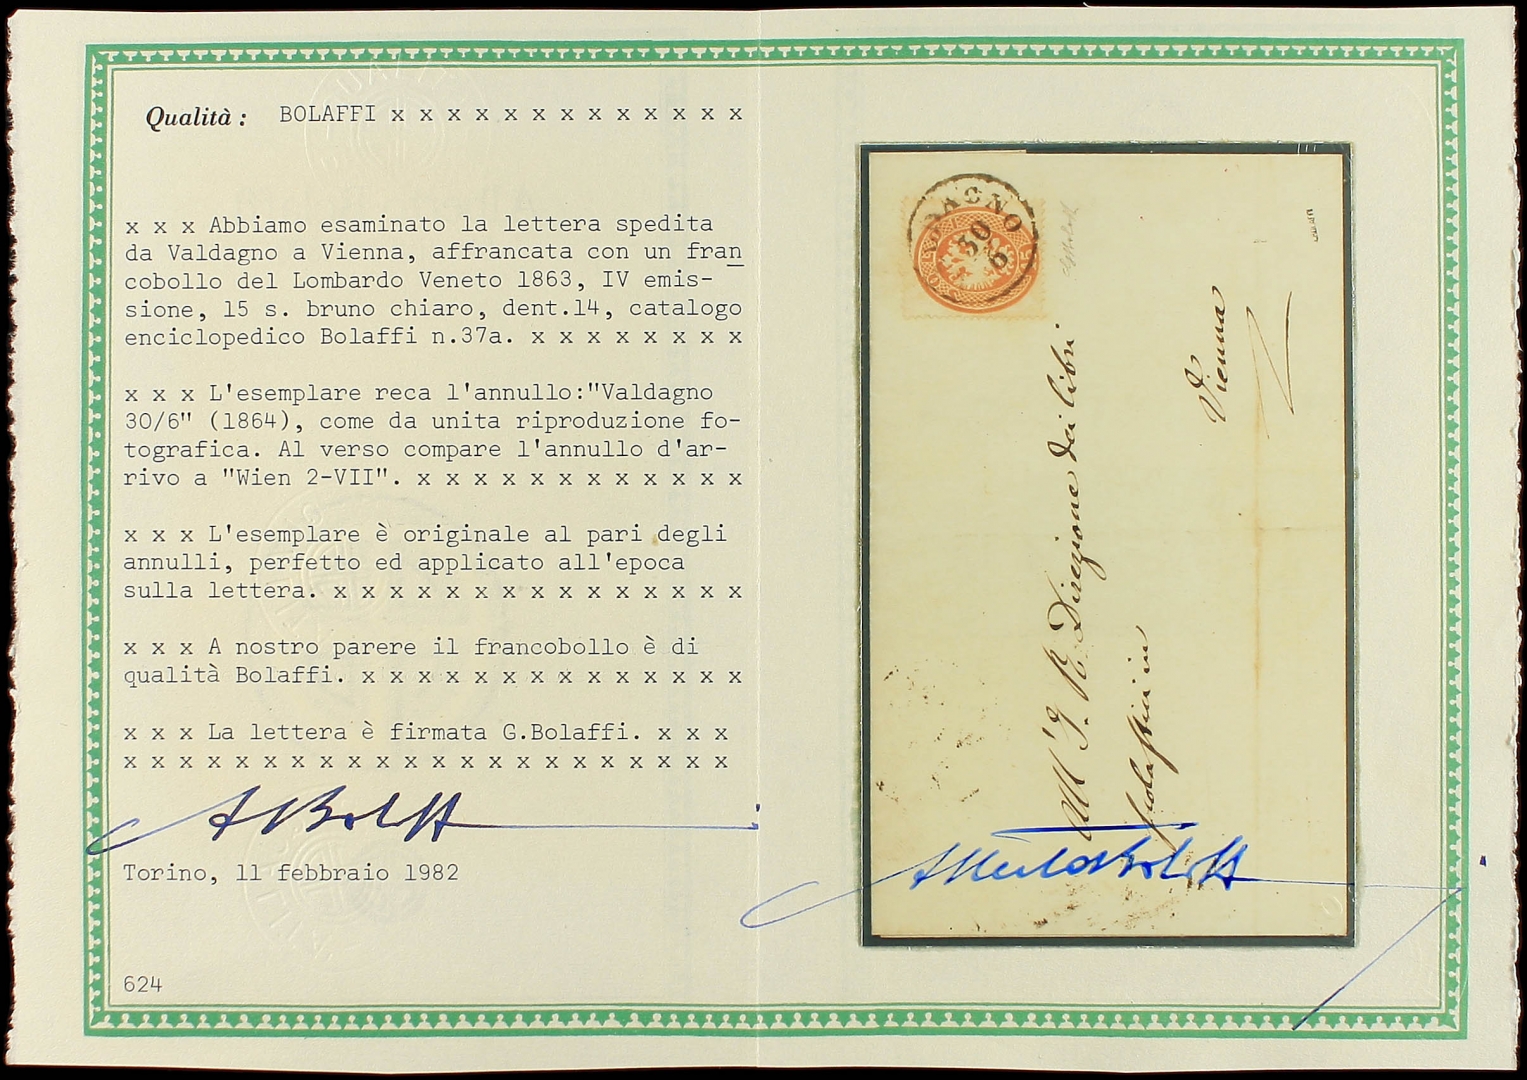 Qualità: BOLAFFI x x x x x x x x x x x x x
x x x Abbiamo esaminato la lettera spedita
da Valdagno a Vienna, affrancata con un fran
cobollo del Lombardo Veneto 1863, IV emis-
sione, 15 s. bruno chiaro, dent.14, catalogo
enciclopedico Bolaffi n.37a. x x x x x x x x
x x x L'esemplare reca l'annullo:"Valdagno
30/6" (1864), come da unita riproduzione fo-
tografica. Al verso compare l'annullo d'ar-
rivo a "Wien 2-VII". x x x x x x x x x x x x
x x x L'esemplare è originale al pari degli
annulli, perfetto ed applicato all'epoca
sulla lettera. x x x x x x x x x x x x x x x
x x x A nostro parere il francobollo è di
qualità Bolaffi. x x x x x x x x x x x x x x
x x x La lettera è firmata G.Bolaffi. x x x
x x x x x x x x x x x x x x x x x x x x x x
ABolaffi
Torino, 11 febbraio 1982
624
VALDAGNO
30
6
All' I. R. Direzione dei libri
scolastici in
Vienna